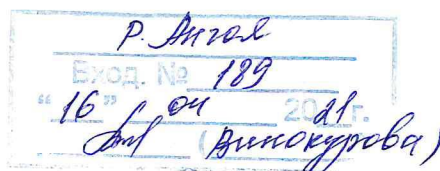 Р. Ангоя
Вход. № 189
"16" 04 2021 г.
(Винокурова)